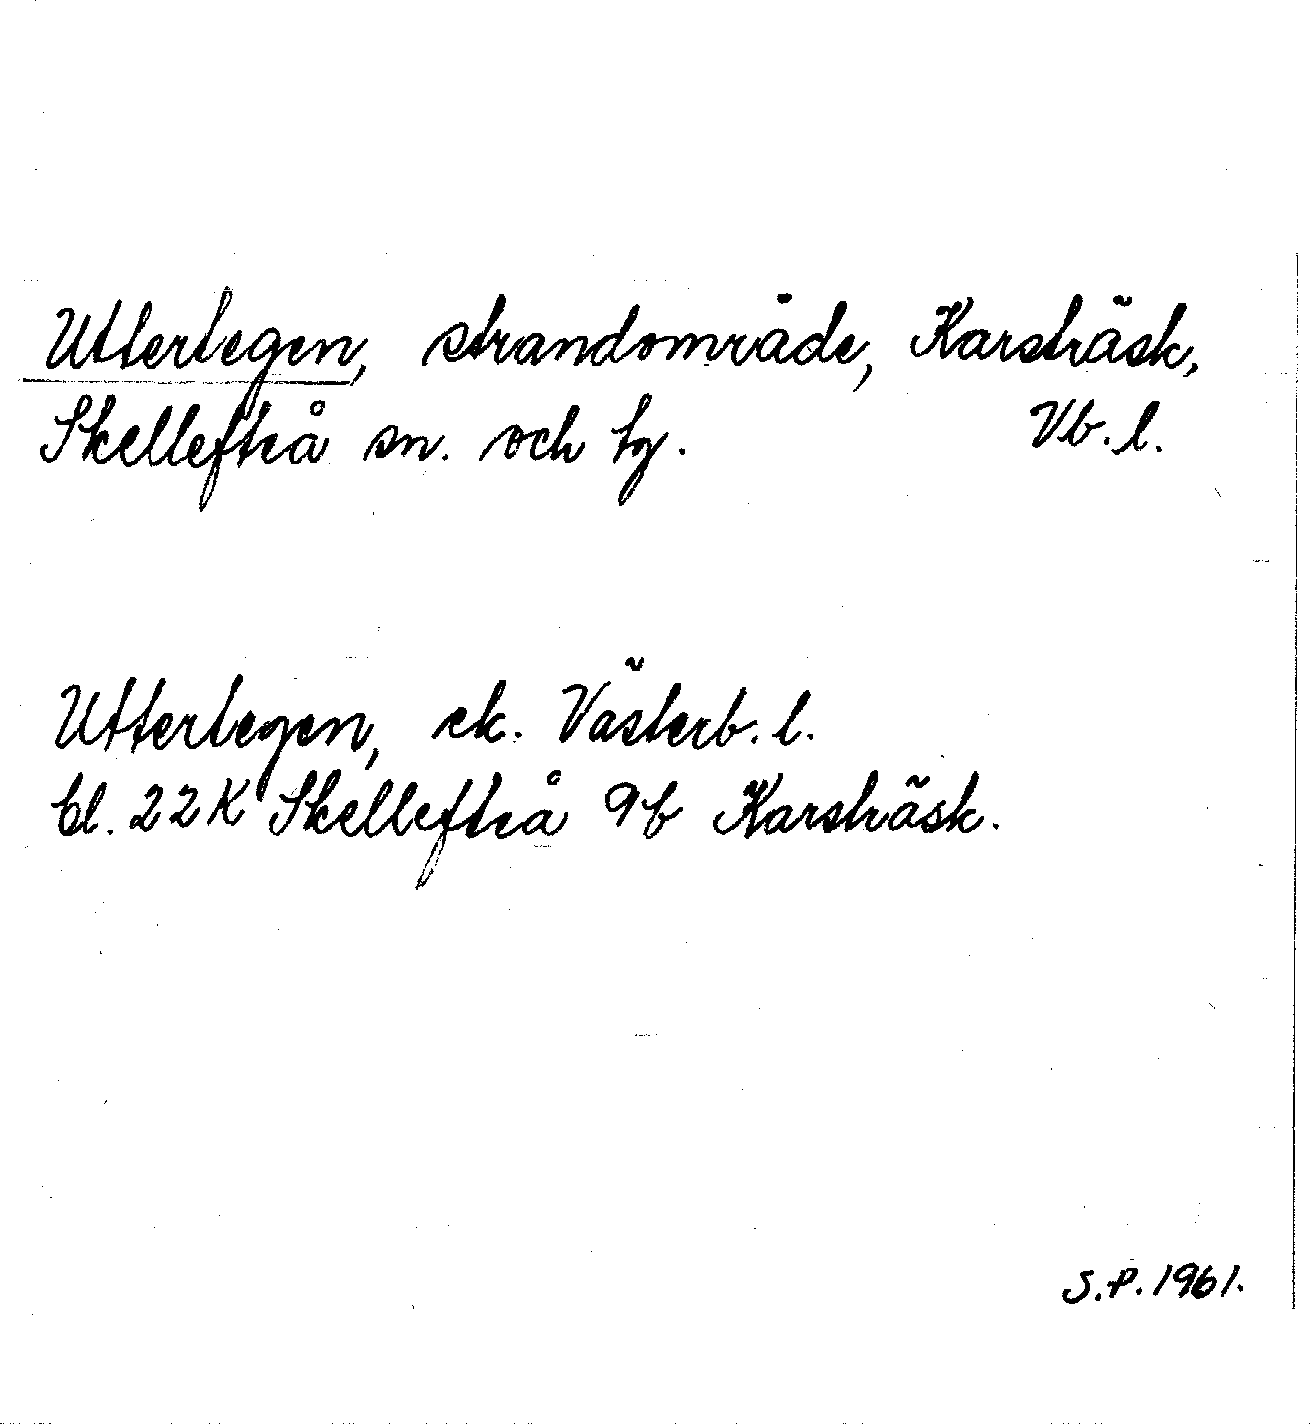 Utterlegen, strandområde, Karsträsk,
Skellefteå sn. och tg. Vb. l.
Utterlegen, ek. Västerb. l.
bl. 22 K Skellefteå 9 b Karsträsk.
S.P. 1961.